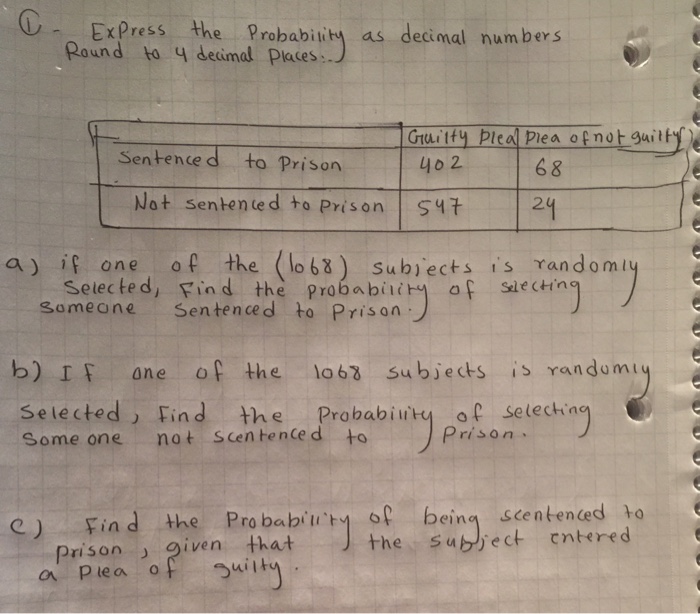 ① - Express the Probability as decimal numbers
Round to 4 decimal Places:-
Guilty Plea Plea of not guilty
Sentenced to Prison 402 68
Not sentenced to prison 547 24
a) if one of the (1068) subjects is randomly
Selected, Find the probability of selecting
Someone Sentenced to Prison.
b) If one of the 1068 subjects is randomly
Selected, Find the Probability of selecting
Some one not scentenced to Prison.
c) Find the Probability of being scentenced to
prison, given that the subject entered
a plea of guilty.